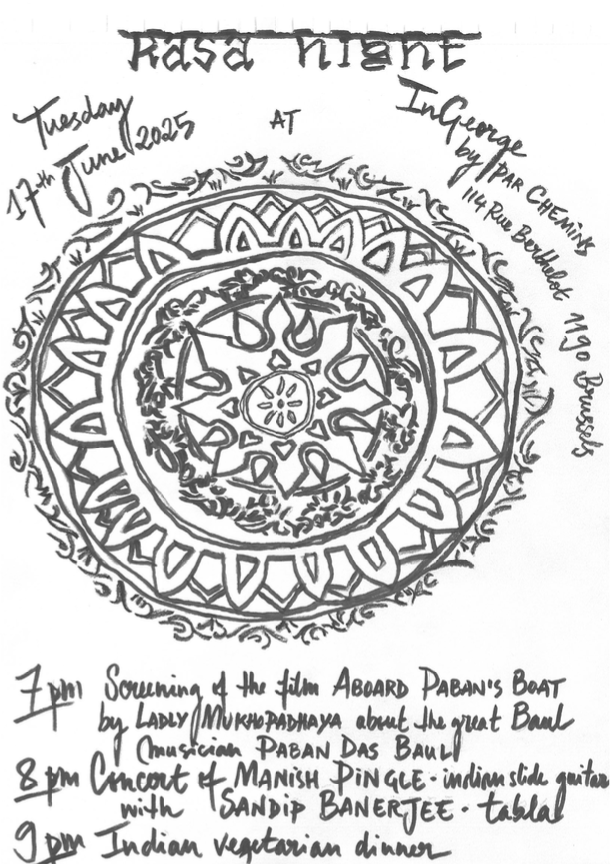 Rasa night
Tuesday
17th June 2025
AT
InGeorge
by PAR CHEMINS
114 Rue Berthelot 1190 Brussels
7pm Screening of the film ABOARD PABAN'S BOAT
by LADLY MUKHOPADHAYA about the great Baul
musician PABAN DAS BAUL
8pm Concert of MANISH PINGLE · indian slide guitar
with SANDIP BANERJEE · tabla
9pm Indian vegetarian dinner